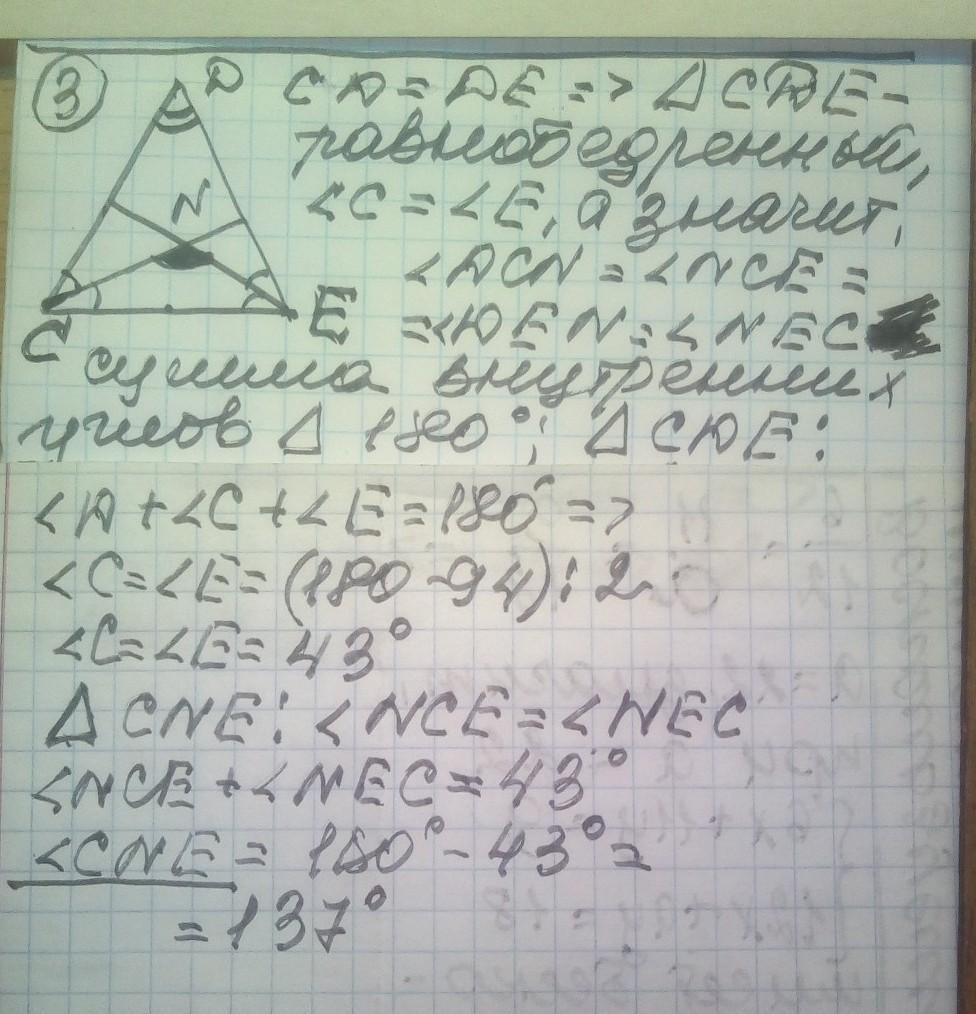 3
D
N
C
E
CД = ДE => Δ CДE -
равнобедренный,
<C = <E, а значит,
<ДCN = <NCE =
= <ДEN = <NEC
сумма внутренних
углов Δ 180°; Δ CДE:
<Д + <C + <E = 180° =>
<C = <E = (180 - 94) : 2
<C = <E = 43°
Δ CNE: <NCE = <NEC
<NCE + <NEC = 43°
<CNE = 180° - 43° =
= 137°